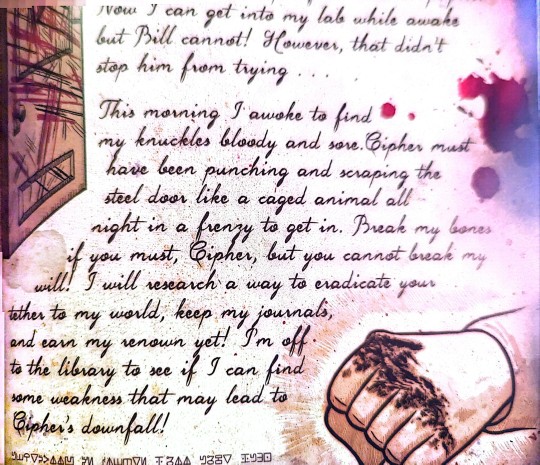 Now I can get into my lab while awake
but Bill cannot! However, that didn't
stop him from trying . . .
This morning I awoke to find
my knuckles bloody and sore. Cipher must
have been punching and scraping the
steel door like a caged animal all
night in a frenzy to get in. Break my bones
if you must, Cipher, but you cannot break my
will! I will research a way to eradicate your
tether to my world, keep my journals,
and earn my renown yet! I'm off
to the library to see if I can find
some weakness that may lead to
Cipher's downfall!